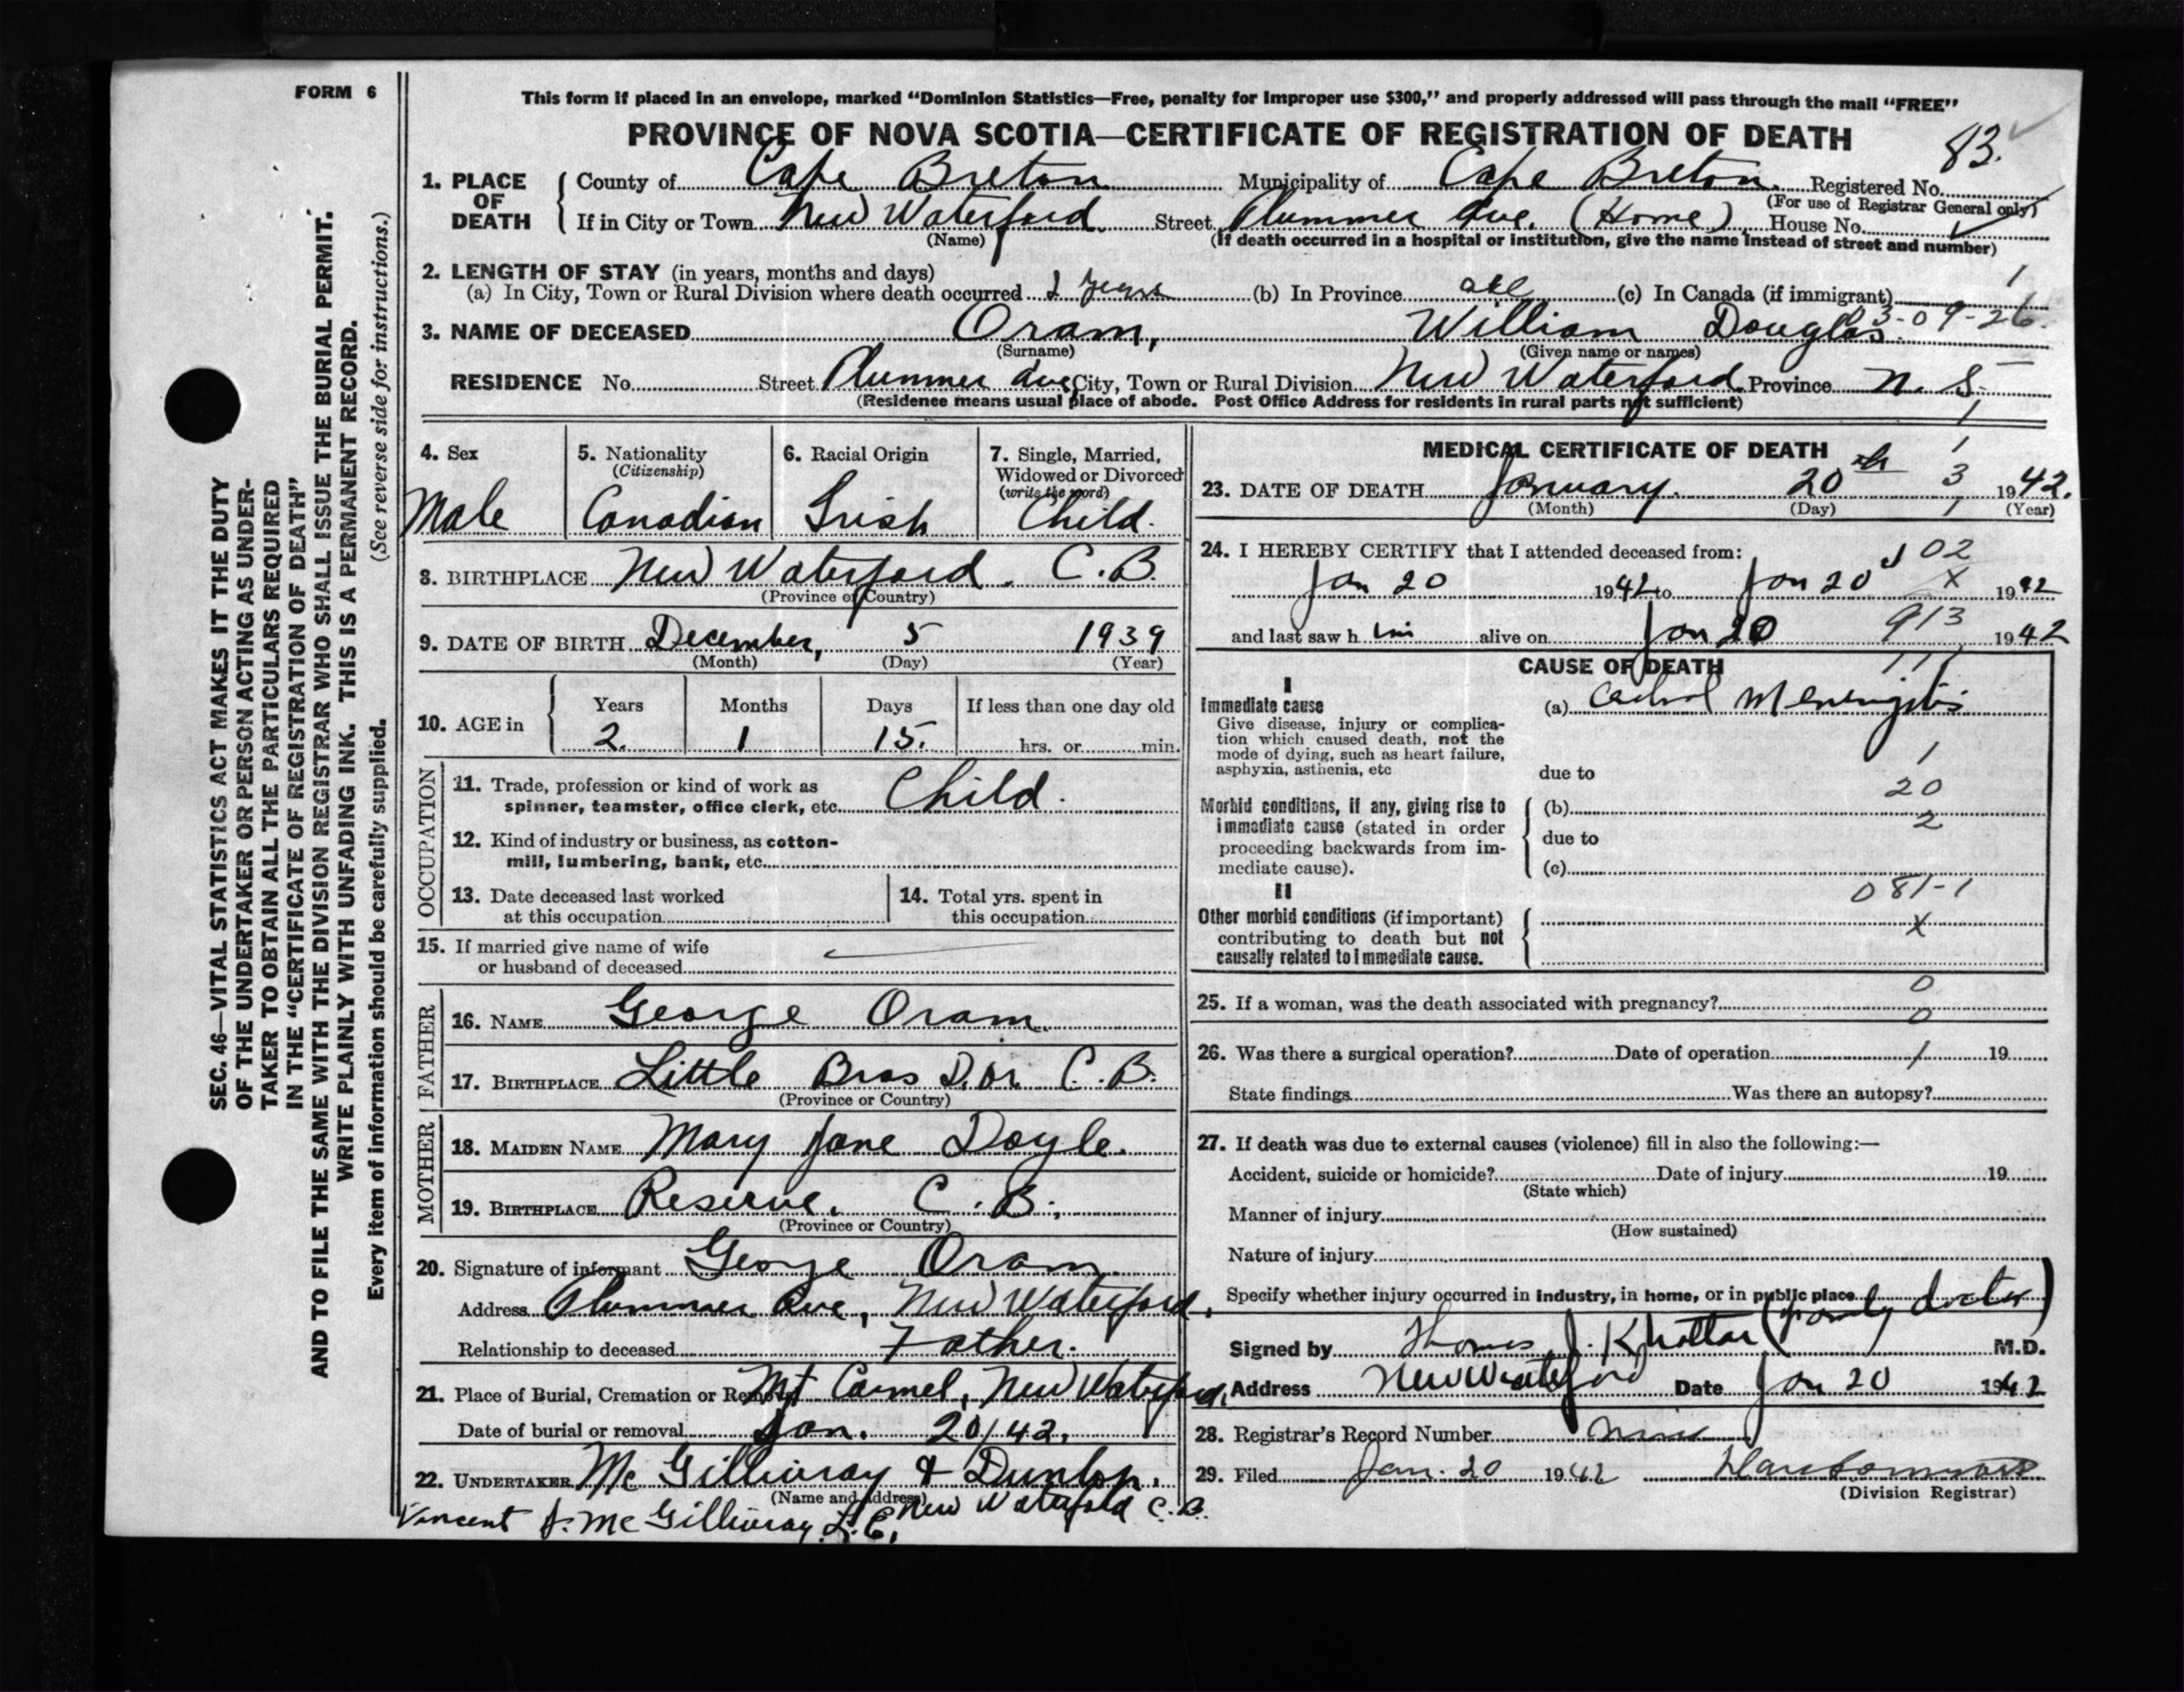 FORM 6
This form if placed in an envelope, marked “Dominion Statistics—Free, penalty for improper use $300,” and properly addressed will pass through the mail “FREE”
PROVINCE OF NOVA SCOTIA—CERTIFICATE OF REGISTRATION OF DEATH
83.
1. PLACE OF DEATH
County of Cape Breton Municipality of Cape Breton. Registered No.
(For use of Registrar General only)
If in City or Town New Waterford. Street Plummer Ave. (Home) House No.
(Name) (If death occurred in a hospital or institution, give the name instead of street and number)
2. LENGTH OF STAY (in years, months and days) 1
(a) In City, Town or Rural Division where death occurred 2 years (b) In Province all (c) In Canada (if immigrant)
3. NAME OF DECEASED Oram, William Douglas 03-09-26
(Surname) (Given name or names)
RESIDENCE No. Street Plummer Ave City, Town or Rural Division New Waterford. Province N. S.
(Residence means usual place of abode. Post Office Address for residents in rural parts not sufficient)
1
4. Sex
Male
5. Nationality
(Citizenship)
Canadian
6. Racial Origin
Irish
7. Single, Married,
Widowed or Divorced
(write the word)
Child.
8. BIRTHPLACE New Waterford. C.B.
(Province or Country)
9. DATE OF BIRTH December, 5 1939
(Month) (Day) (Year)
10. AGE in
Years Months Days If less than one day old
2. 1 15. hrs. or min.
OCCUPATION
11. Trade, profession or kind of work as
spinner, teamster, office clerk, etc. Child.
12. Kind of industry or business, as cotton-
mill, lumbering, bank, etc.
13. Date deceased last worked
at this occupation
14. Total yrs. spent in
this occupation
15. If married give name of wife
or husband of deceased
FATHER
16. NAME George Oram.
17. BIRTHPLACE Little Bras D.or C.B.
(Province or Country)
MOTHER
18. MAIDEN NAME Mary Jane Doyle.
19. BIRTHPLACE Reserve. C.B.
(Province or Country)
20. Signature of informant George Oram
Address Plummer Ave, New Waterford,
Relationship to deceased Father.
21. Place of Burial, Cremation or Removal Mt Carmel, New Waterford,
Date of burial or removal Jan. 20/42.
22. UNDERTAKER McGillivray & Dunlop.
(Name and address) New Waterford C.B.
Vincent J. McGillivray L.E.
MEDICAL CERTIFICATE OF DEATH 1
23. DATE OF DEATH January. 20th 3 1942.
(Month) (Day) 1 (Year)
24. I HEREBY CERTIFY that I attended deceased from: 02
Jan 20 1942 to Jan 20 X 1942
and last saw h im alive on Jan 20 913 1942
CAUSE OF DEATH 111
I
Immediate cause
Give disease, injury or complica-
tion which caused death, not the
mode of dying, such as heart failure,
asphyxia, asthenia, etc
(a) Meningitis
1
due to
20
Morbid conditions, if any, giving rise to
immediate cause (stated in order
proceeding backwards from im-
mediate cause).
(b)
2
due to
(c)
081-1
II
Other morbid conditions (if important)
contributing to death but not
causally related to immediate cause.
X
0
25. If a woman, was the death associated with pregnancy?
0
26. Was there a surgical operation? Date of operation 1 19
State findings Was there an autopsy?
27. If death was due to external causes (violence) fill in also the following:—
Accident, suicide or homicide? Date of injury 19
(State which)
Manner of injury
(How sustained)
Nature of injury
Specify whether injury occurred in industry, in home, or in public place
Signed by Thomas J. Khattar (family doctor) M.D.
Address New Waterford Date Jan 20 1942
28. Registrar’s Record Number nine
29. Filed Jan. 20 1942
(Division Registrar)
SEC. 46—VITAL STATISTICS ACT MAKES IT THE DUTY
OF THE UNDERTAKER OR PERSON ACTING AS UNDER-
TAKER TO OBTAIN ALL THE PARTICULARS REQUIRED
IN THE “CERTIFICATE OF REGISTRATION OF DEATH”
AND TO FILE THE SAME WITH THE DIVISION REGISTRAR WHO SHALL ISSUE THE BURIAL PERMIT.
WRITE PLAINLY WITH UNFADING INK. THIS IS A PERMANENT RECORD.
Every item of information should be carefully supplied. (See reverse side for instructions.)